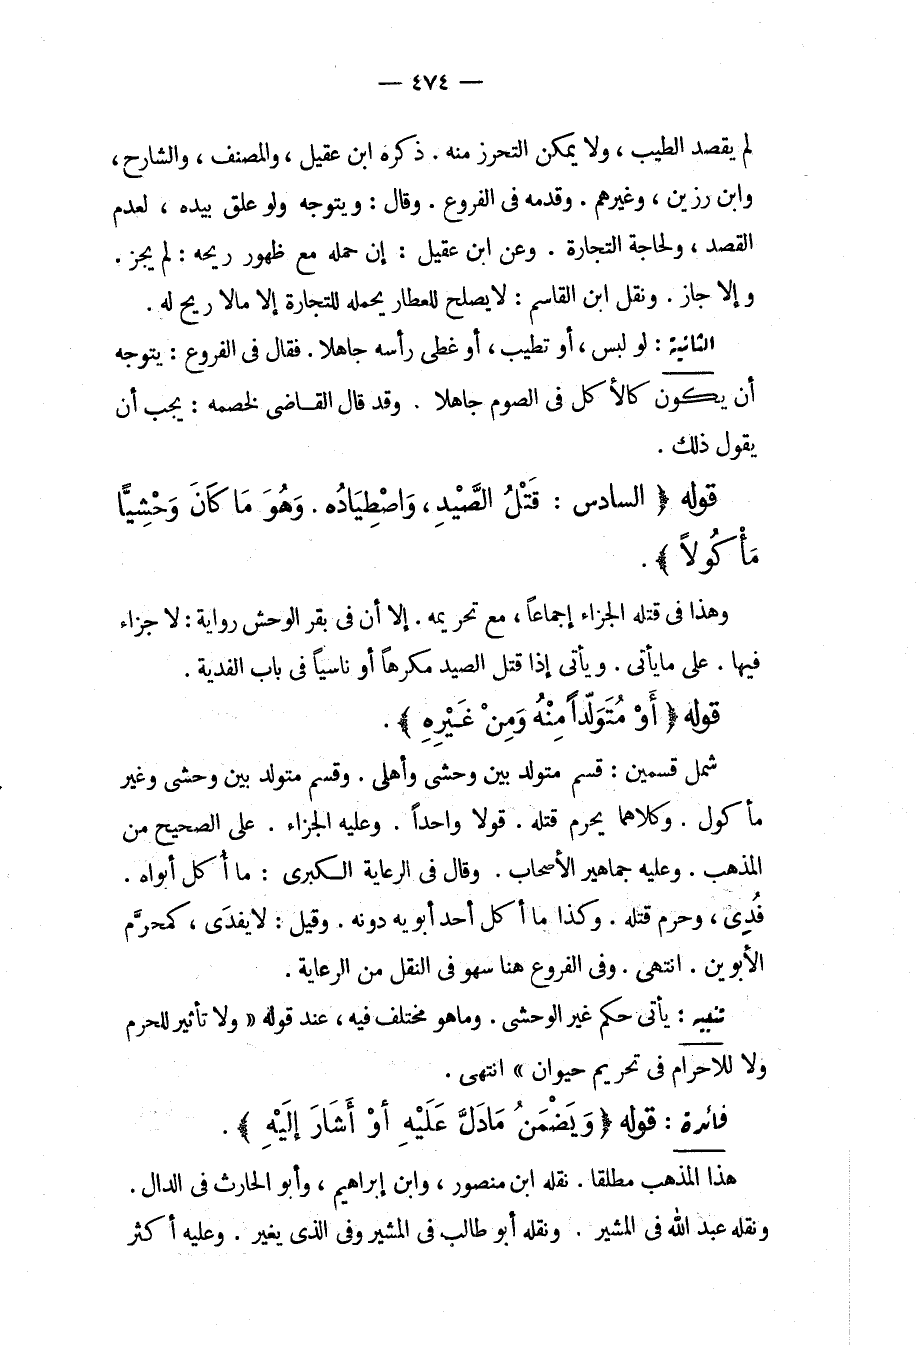 — ٤٧٤ —
لم يقصد الطيب ، ولا يمكن التحرز منه . ذكره ابن عقيل ، والمصنف ، والشارح ،
وابن رزين ، وغيرهم . وقدمه فى الفروع . وقال : ويتوجه ولو علق بيده ، لعدم
القصد ، ولحاجة التجارة . وعن ابن عقيل : إن حمله مع ظهور ريحه : لم يجز .
وإلا جاز . ونقل ابن القاسم : لايصلح للعطار يحمله للتجارة إلا مالا ريح له .
الثانية : لو لبس ، أو تطيب ، أو غطى رأسه جاهلا . فقال فى الفروع : يتوجه
أن يكون كالأكل فى الصوم جاهلا . وقد قال القاضى لخصمه : يجب أن
يقول ذلك .
قوله ﴿ السادس : قَتْلُ الصَّيْدِ ، وَاصْطِيَادُه . وَهُوَ مَا كَانَ وَحْشِيًّا
مَأْكُولاً ﴾ .
وهذا فى قتله الجزاء إجماعاً ، مع تحريمه . إلا أن فى بقر الوحش رواية : لا جزاء
فيها . على مايأتى . ويأتى إذا قتل الصيد مكرهاً أو ناسياً فى باب الفدية .
قوله ﴿ أَوْ مُتَوَلّداً مِنْهُ وَمِنْ غَيْرِهِ ﴾ .
شمل قسمين : قسم متولد بين وحشى وأهلى . وقسم متولد بين وحشى وغير
مأكول . وكلاهما يحرم قتله . قولا واحداً . وعليه الجزاء . على الصحيح من
المذهب . وعليه جماهير الأصحاب . وقال فى الرعاية الكبرى : ما أُكل أبواه .
فُدِىَ ، وحرم قتله . وكذا ما أكل أحد أبويه دونه . وقيل : لايفدَى ، كمحرَّم
الأبوين . انتهى . وفى الفروع هنا سهو فى النقل من الرعاية .
تنبيه : يأتى حكم غير الوحشى . وماهو مختلف فيه ، عند قوله « ولا تأثير للحرم
ولا للاحرام فى تحريم حيوان » انتهى .
فائرة : قوله ﴿ وَيَضْمَنُ مَادَلَّ عَلَيْهِ أوْ أَشَارَ إلَيْهِ ﴾ .
هذا المذهب مطلقا . نقله ابن منصور ، وابن إبراهيم ، وأبو الحارث فى الدال .
ونقله عبد الله فى المشير . ونقله أبو طالب فى المشير وفى الذى يغير . وعليه أكثر